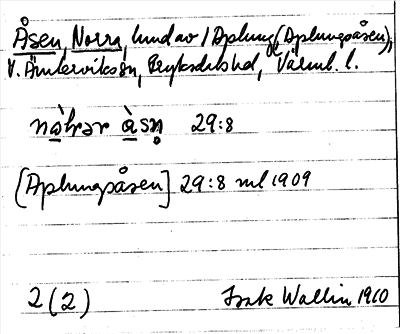 Åsen, Norra, hmd av 1 Aplung (Aplungsåsen),
V. Ämterviks sn, Fryksdals hd, Värml. l.
nàhrər àsn̥ 29:8
[Aplungsåsen] 29:8 ml 1909
2(2) Isak Wallin 1910